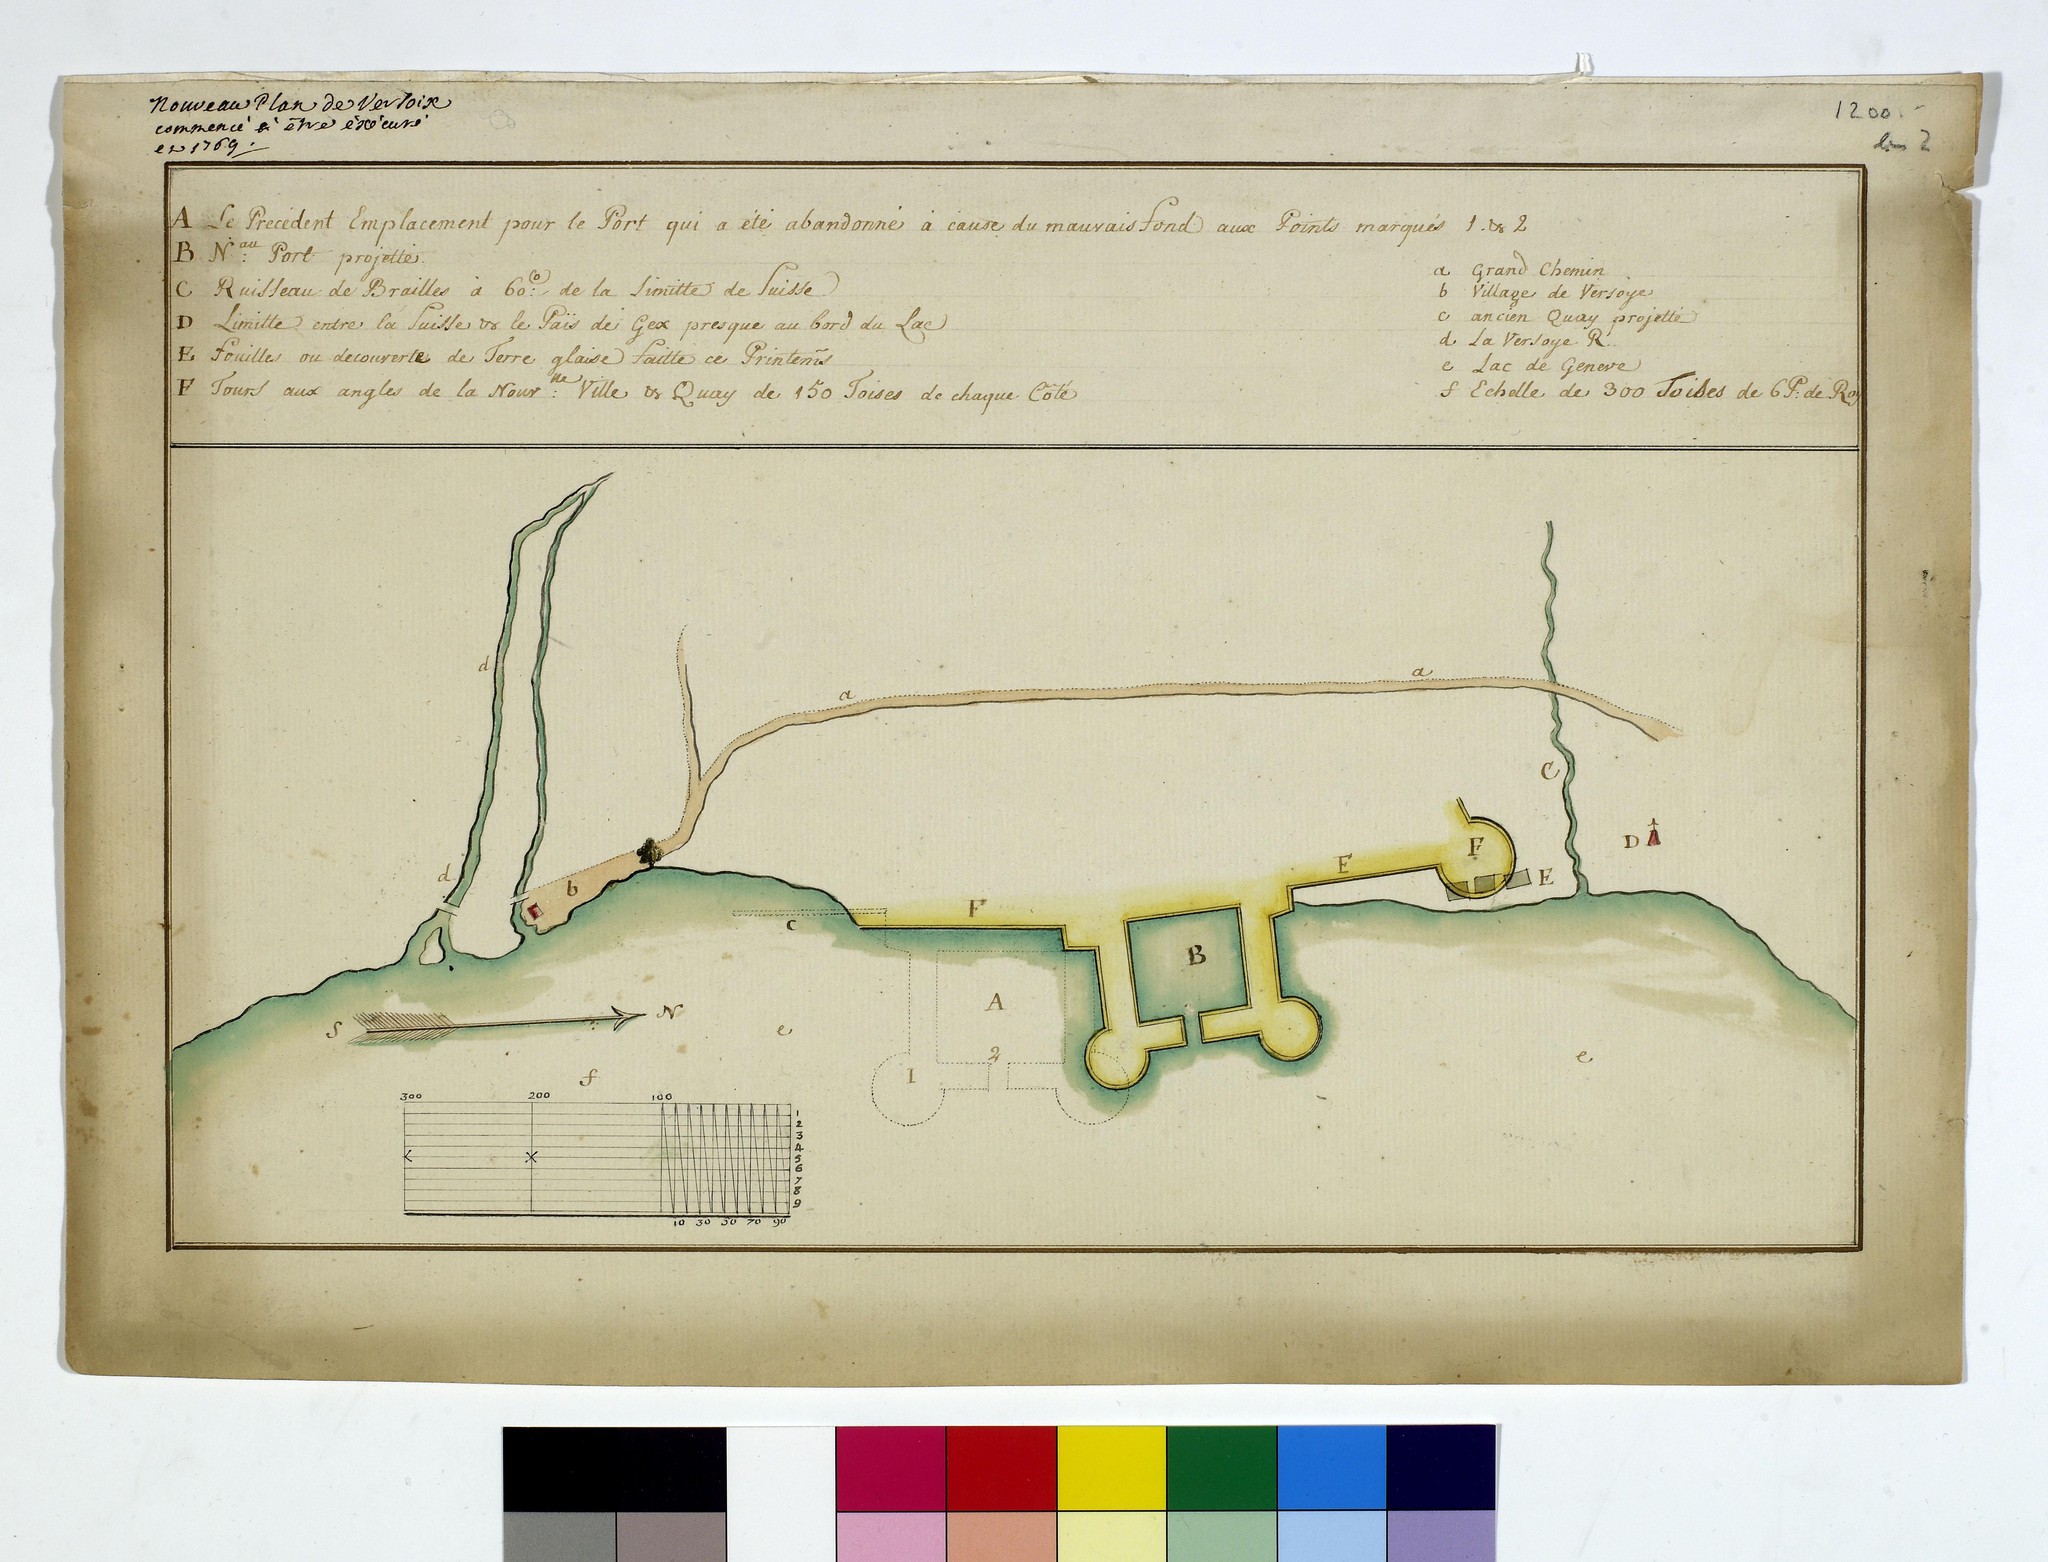 Nouveau Plan de Versoix
commencé à être éxécuté
en 1769.
1200
lin 2
A Le Precedent Emplacement pour le Port qui a été abandonné à cause du mauvais fond aux Points marqués 1. & 2
B N.au Port projetté.
C Ruisseau de Brailles à 60.o de la Limitte de Suisse
D Limitte entre la Suisse & le Païs de Gex presque au bord du Lac
E Fouilles ou decouverte de Terre glaise faitte ce Printems
F Tours aux angles de la Nouv.lle Ville & Quay de 150 Toises de chaque Côté
a Grand Chemin
b Village de Versoye
c ancien Quay projetté
d La Versoye R.
e Lac de Geneve
f Echelle de 300 Toises de 6 P. de Roy
d
a
a
C
D
d
b
F
F
F
E
c
B
A
S
N
e
2
1
e
f
300 200 100
1
2
3
4
5
6
7
8
9
10 30 50 70 90